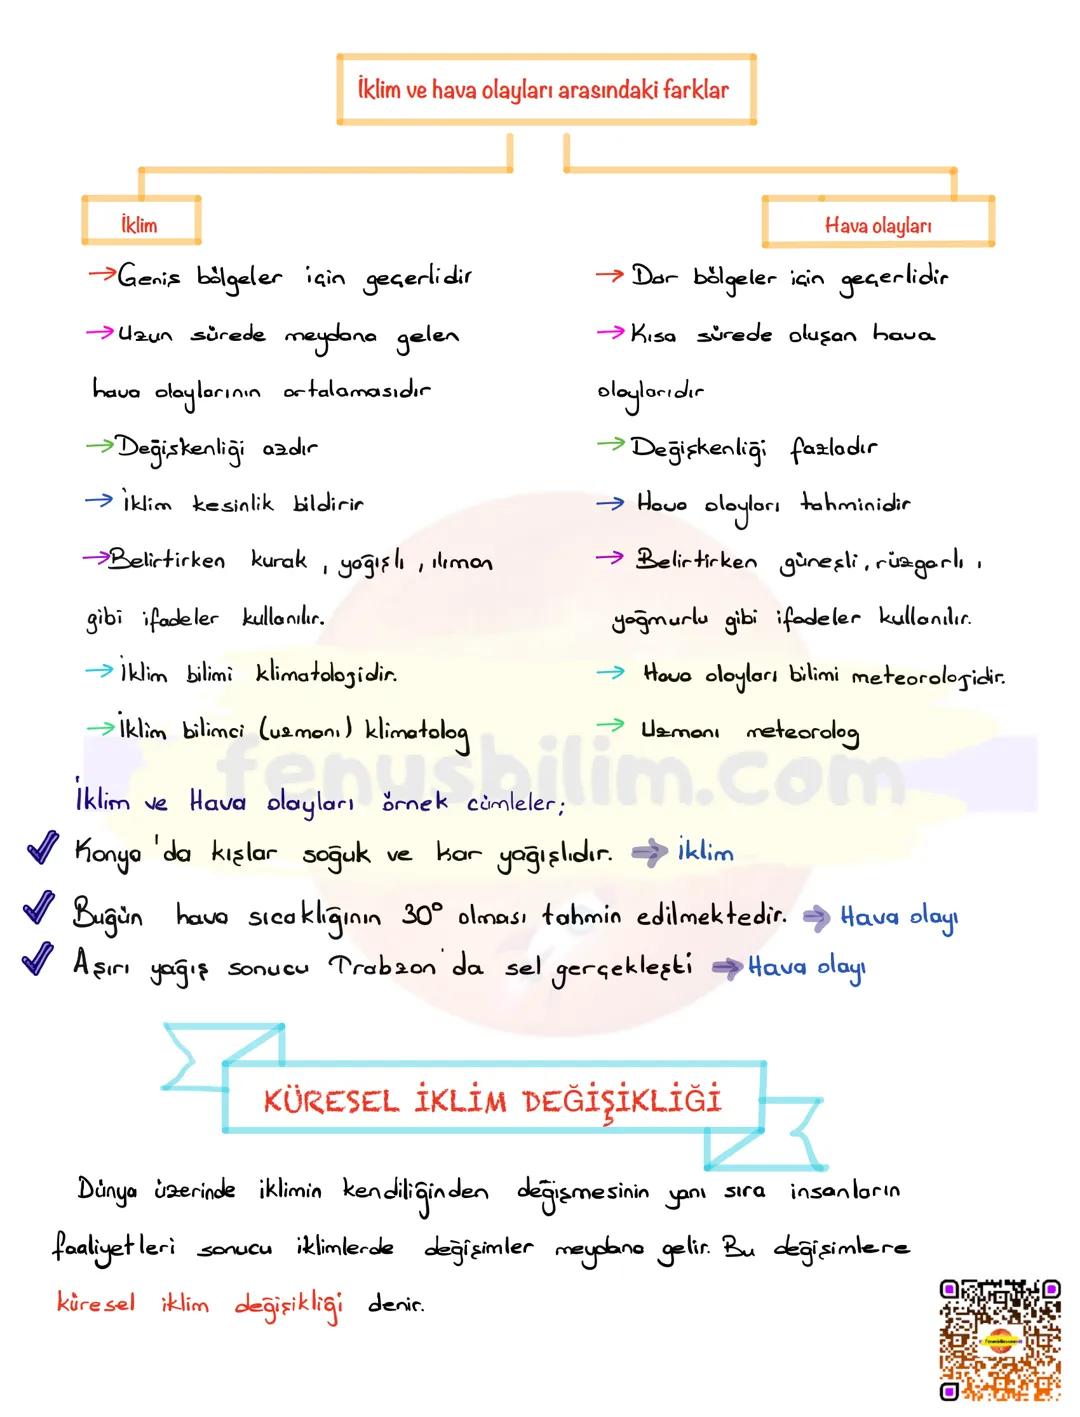 İklim ve hava olayları arasındaki farklar
İklim
→Geniş bölgeler için geçerlidir
→Uzun sürede meydana gelen
hava olaylarının ortalamasıdır
→Değişkenliği azdır
→ İklim kesinlik bildirir
→Belirtirken kurak, yağışlı, ılıman
gibi ifadeler kullanılır.
→İklim bilimi klimatolojidir.
→İklim bilimci (uzmanı) klimatolog
Hava olayları
→ Dar bölgeler için geçerlidir
→Kısa sürede oluşan hava
olaylarıdır
→Değişkenliği fazladır
→ Hava olayları tahminidir
→ Belirtirken güneşli, rüzgarlı,
yağmurlu gibi ifadeler kullanılır.
→ Hava olayları bilimi meteorolojidir.
→ Uzmanı meteorolog
fenusbilim.com
İklim ve Hava olayları örnek cümleler;
✓ Konya'da kışlar soğuk ve kar yağışlıdır. → İklim
✓ Bugün hava sıcaklığının 30° olması tahmin edilmektedir. → Hava olayı
✓ Aşırı yağış sonucu Trabzon'da sel gerçekleşti → Hava olayı
KÜRESEL İKLİM DEĞİŞİKLİĞİ
Dünya üzerinde iklimin kendiliğinden değişmesinin yanı sıra insanların
faaliyetleri sonucu iklimlerde değişimler meydana gelir. Bu değişimlere
küresel iklim değişikliği denir.